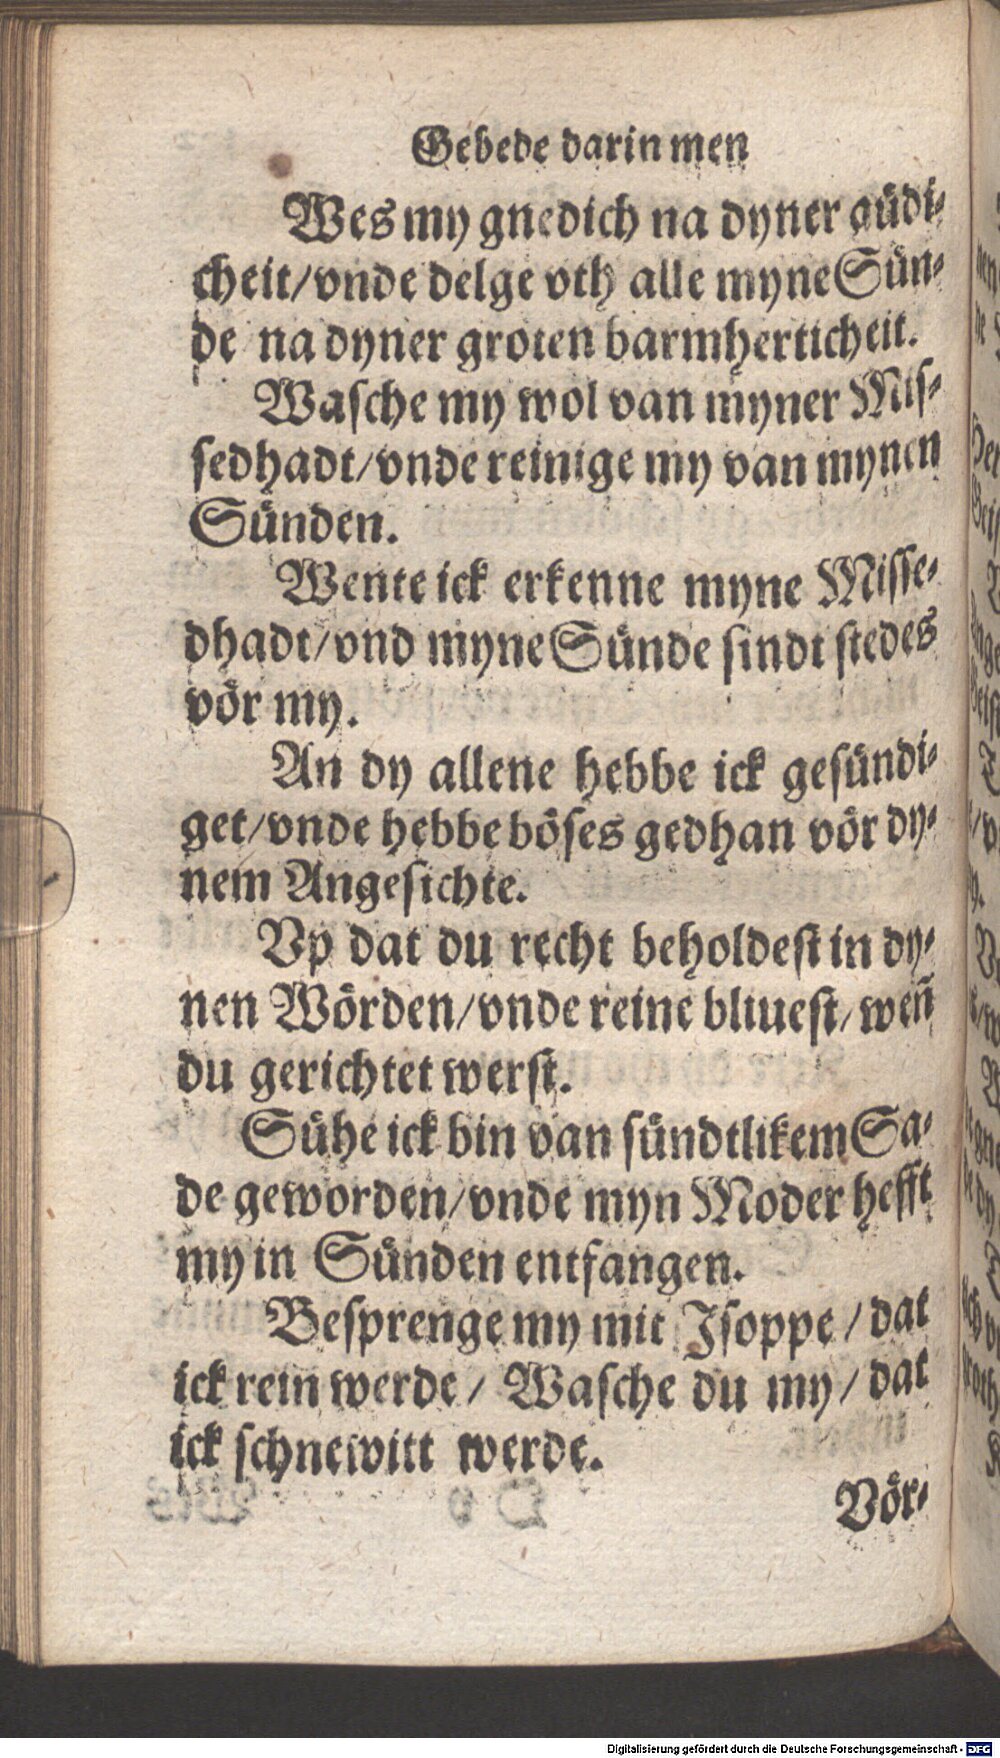 Gebede darin men
Wes my gnedich na dyner güdi⸗
cheit/vnde delge vth alle myne Sün⸗
de na dyner groten barmherticheit.
Wasche my wol van myner Mis⸗
sedhadt/vnde reinige my van mynen
Sünden.
Wente ick erkenne myne Misse⸗
dhadt/vnd myne Sünde sindt stedes
vör my.
An dy allene hebbe ick gesündi⸗
get/vnde hebbe böses gedhan vör dy⸗
nem Angesichte.
Vp dat du recht beholdest in dy⸗
nen Wörden/vnde reine bliuest/weñ
du gerichtet werst.
Sühe ick bin van sündtlikem Sa⸗
de geworden/vnde myn Moder hefft
my in Sünden entfangen.
Besprenge my mit Jsoppe/dat
ick rein werde/Wasche du my/dat
ick schnewitt werde.
Vör⸗
Digitalisierung gefördert durch die Deutsche Forschungsgemeinschaft - DFG